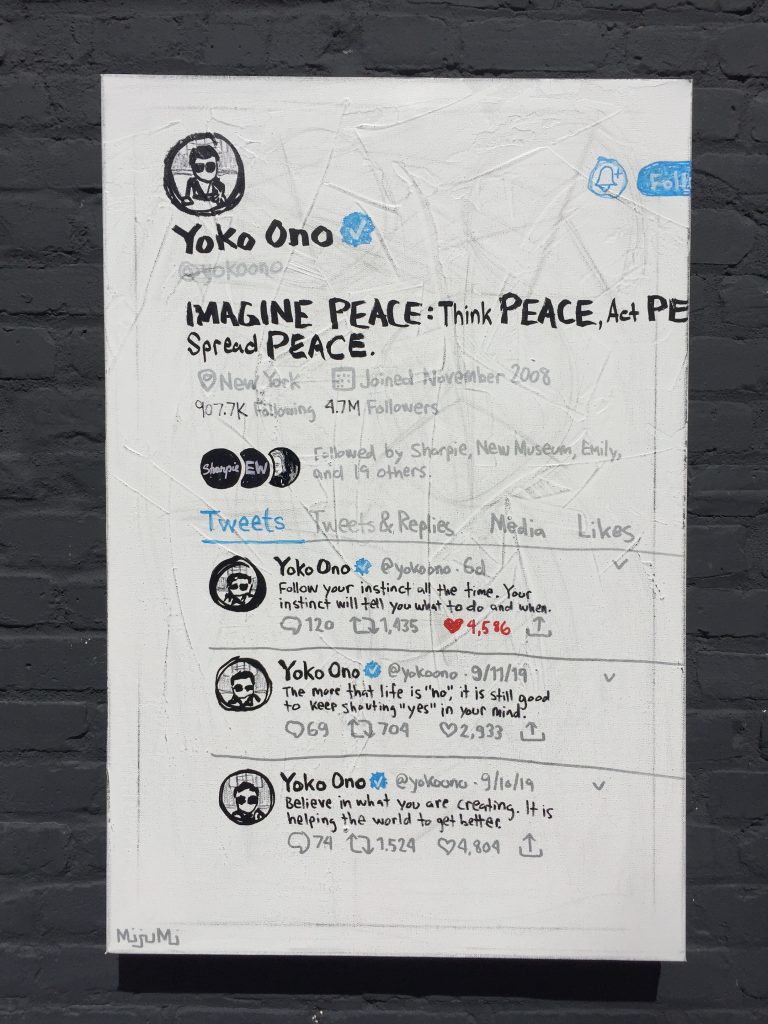 Foll
Yoko Ono
@yokoono
IMAGINE PEACE: Think PEACE, Act PE
Spread PEACE.
New York Joined November 2008
907.7K Following 4.7M Followers
Sharpie EW
Followed by Sharpie, New Museum, Emily,
and 19 others.
Tweets Tweets & Replies Media Likes
Yoko Ono @yokoono · 6d
Follow your instinct all the time. Your
instinct will tell you what to do and when.
120 1,435 4,586
Yoko Ono @yokoono · 9/11/19
The more that life is "no", it is still good
to keep shouting "yes" in your mind.
69 704 2,933
Yoko Ono @yokoono · 9/10/19
Believe in what you are creating. It is
helping the world to get better.
74 1.524 4,804
MijuMi